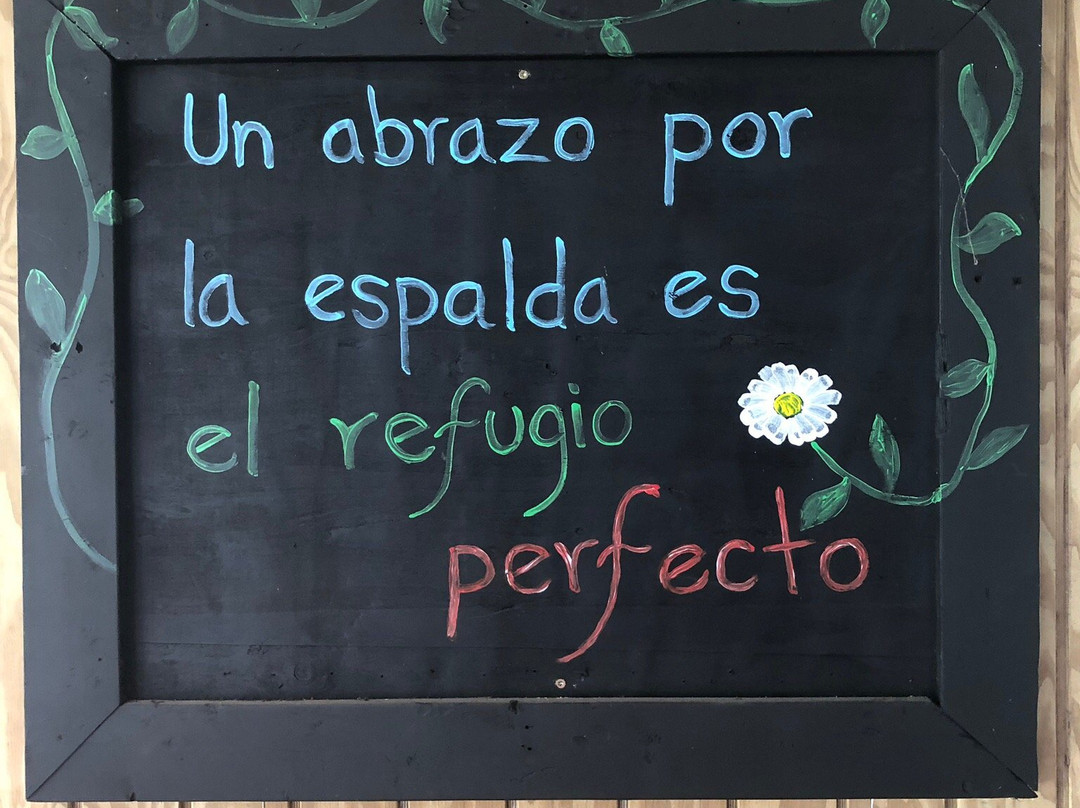 Un abrazo por
la espalda es
el refugio
perfecto